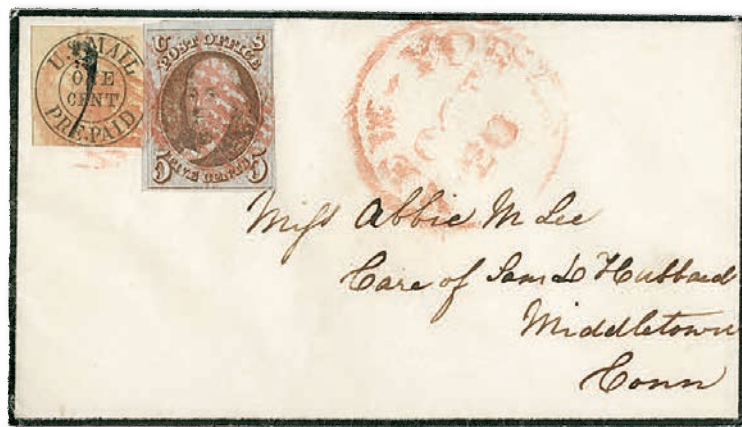 U.S MAIL
ONE
CENT
PRE.PAID
U S
POST OFFICE
5 FIVE CENTS 5
NEW-YORK
OCT
20
Miss Abbie M Lee
Care of Sam L Hubbard
Middletown
Conn